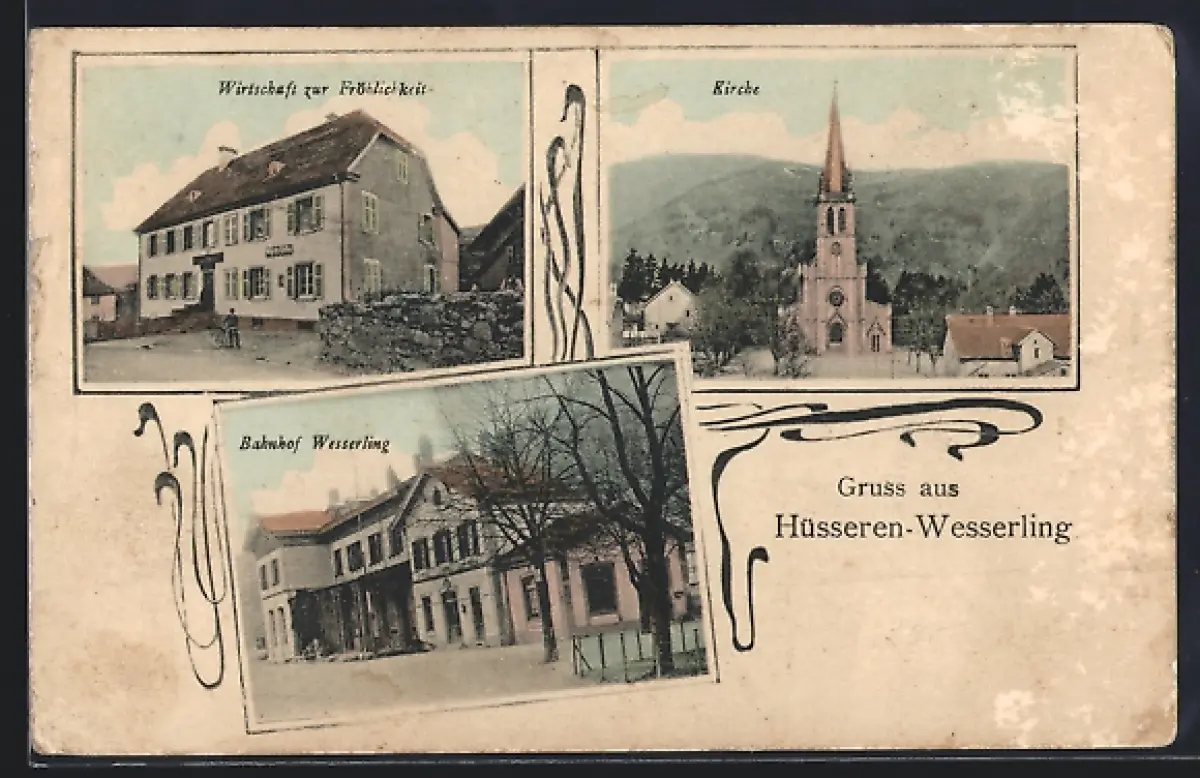 Wirtschaft zur Fröhlichkeit
Kirche
Bahnhof Wesserling
Gruss aus
Hüsseren-Wesserling